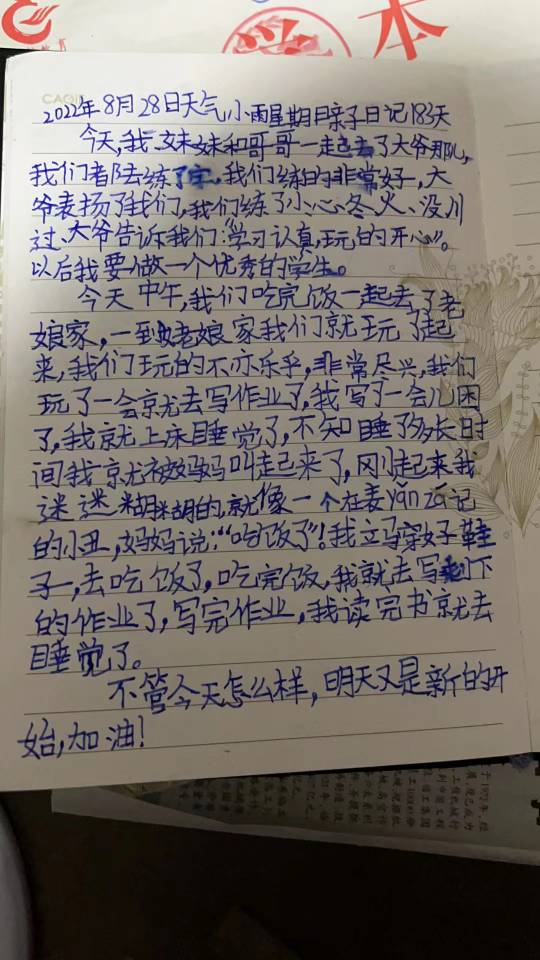 本
CAGIE
2022年8月28日天气小雨星期日亲子日记183天
今天,我妹妹和哥哥一起去了大爷那儿,
我们都去练了字,我们练的非常好,大
爷表扬了我们,我们练了小、心、冬、火、没川
过、大爷告诉我们:“学习认真,玩的开心”。
以后我要做一个优秀的学生。
今天中午,我们吃完饭一起去了老
娘家,一到老娘家我们就玩了起
来,我们玩的不亦乐乎,非常尽兴,我们
玩了一会就去写作业了,我写了一会儿困
了,我就上床睡觉了,不知睡了多长时
间我就被妈妈叫起来了,刚起来我
迷迷糊糊的,就像一个在表yǎn
的小丑,妈妈说:“吃饭了”!我立马穿好鞋
子,去吃饭了,吃完饭,我就去写剩下
的作业了,写完作业,我读完书就去
睡觉了。
不管今天怎么样,明天又是新的开
始,加油!